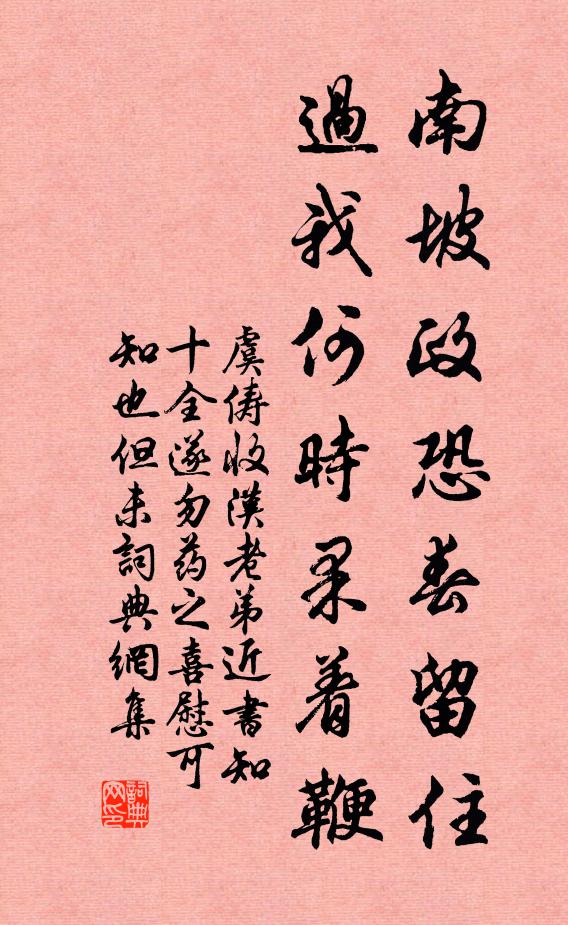 南坡政恐春留住
過我何時果着鞭
虞儔收漢老弟近書知
十全遂勿药之喜慰可
知也但未詞典網集
詞典
网印